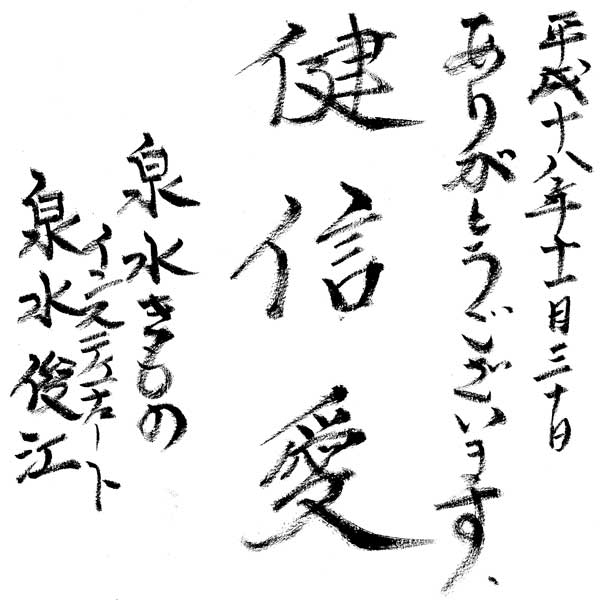 平成十八年十一月三十日
ありがとうございます、
健信愛
泉水きもの
インスティチュート
泉水俊江